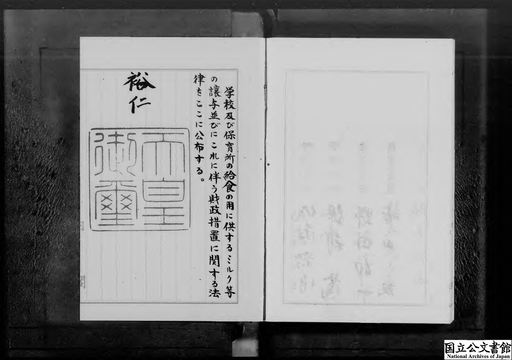 学校及び保育所の給食の用に供するミルク等
の譲与並びにこれに伴う財政措置に関する法
律をここに公布する。
裕仁
天皇
御璽
国立公文書館
National Archives of Japan